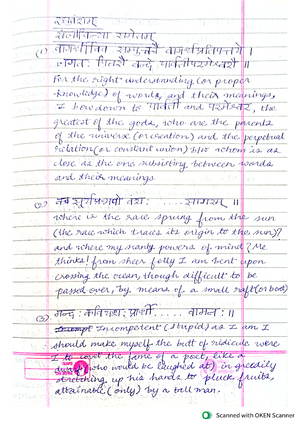 रघुवंशम्
(1) वागर्थाविव सम्पृक्तौ वागर्थप्रतिपत्तये ।
जगतः पितरौ वन्दे पार्वतीपरमेश्वरौ ॥
For the right understanding (or proper
knowledge) of words, and their meanings,
I bow down to पार्वती and परमेश्वर, the
greatest of the gods, who are the parents
of the universe (or creation) and the perpetual
relation (or constant union) b/w whom is as
close as the one subsisting between words
and their meanings
(2) क्व सूर्यप्रभवो वंशः ..... सागरम् ॥
where is the race sprung from the sun
(the race which traces its origin to the sun)?
and where my scanty powers of mind? Me
thinks! from sheer folly I am bent upon
crossing the ocean, though difficult to be
passed over, by means of a small raft (or boat)
(3) मन्दः कवियशः प्रार्थी ..... वामनः ॥
Incompetent (stupid) as I am I
should make myself the butt of ridicule were
I to covet the fame of a poet, like a
(who would be laughed at) in greedily
stretching up his hands to pluck fruits,
attainable (only) by a tall man.
Scanned with OKEN Scanner